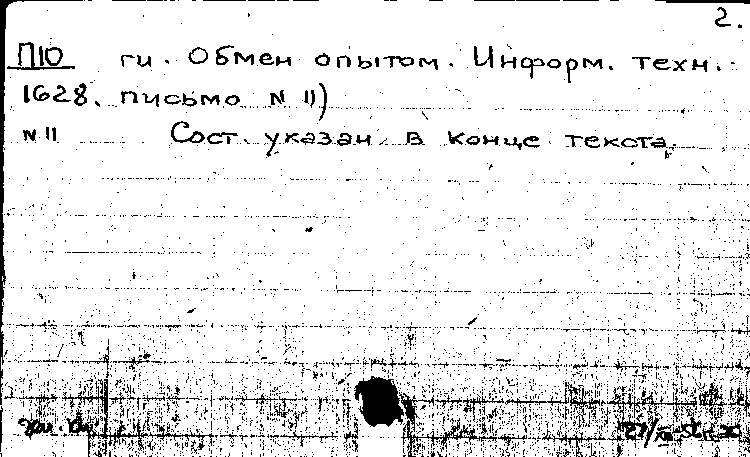 2.
П10 ги. Обмен опытом. Информ. техн.
1628. письмо N 11)
N 11 Сост. указан в конце текста.
27/XII